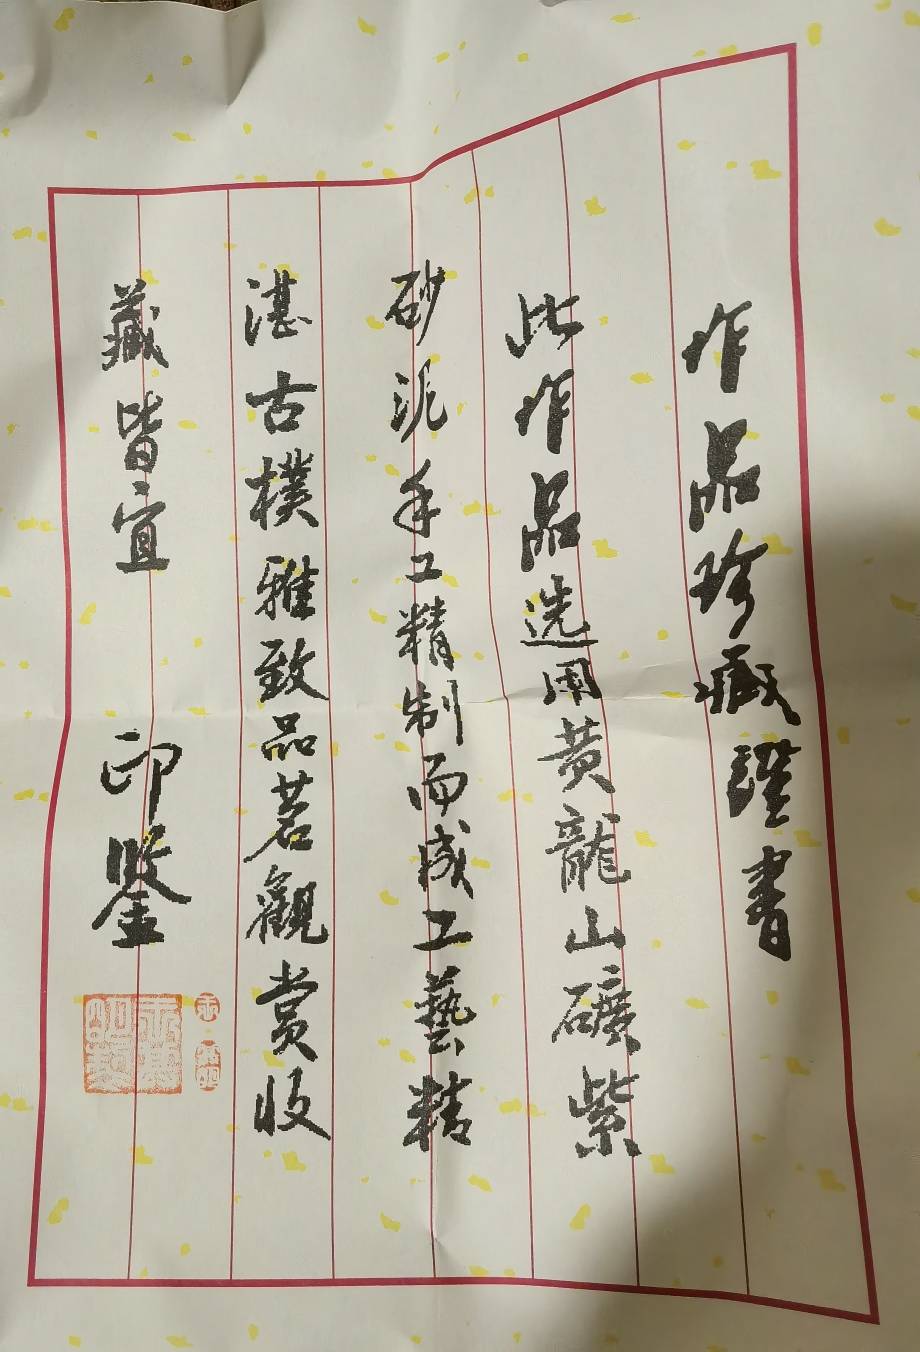 作品珍藏證書
此作品选用黄龍山礦紫
砂泥手工精制而成工藝精
湛古樸雅致品茗觀赏收
藏皆宜 印鑒